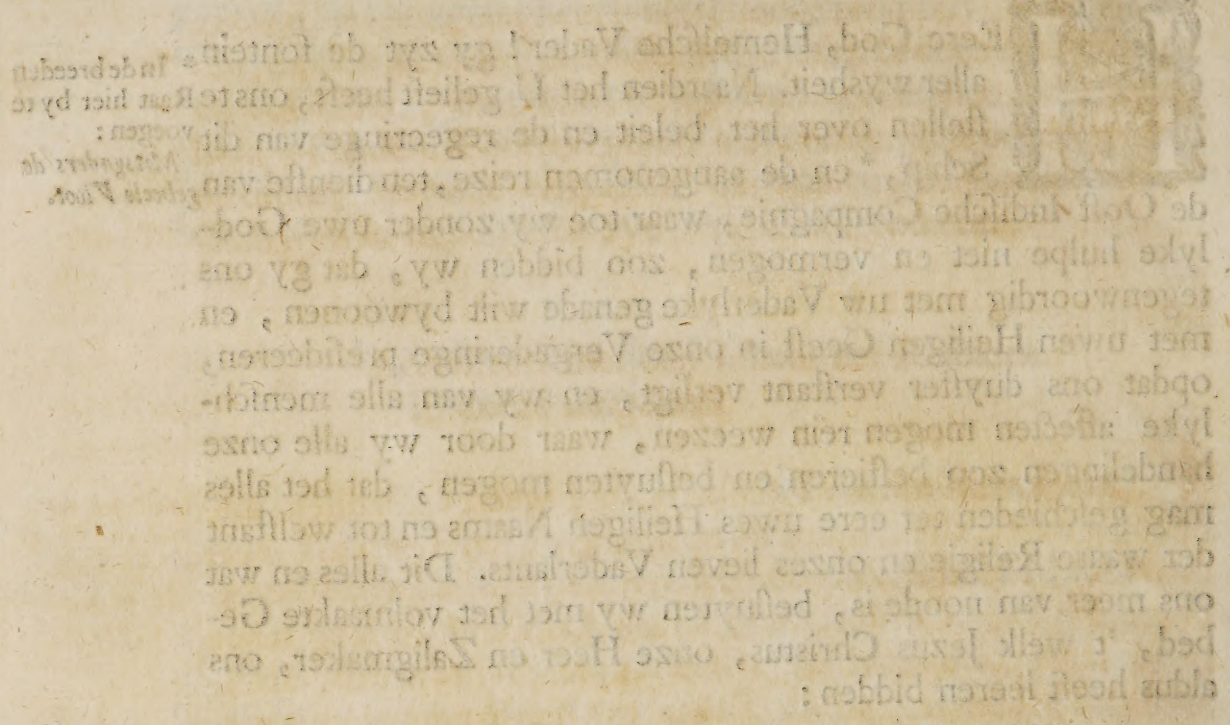 HEere God, Hemelsche Vader! gy zyt de fontein
aller wysheit. Naardien het U gelieft heeft, ons te
stellen over het beleit en de regeeringe van dit
Schip, * en de aangenomen reize, ten dienste van
de Oost-Indische Compagnie, waar toe wy zonder uwe God-
lyke hulpe niet en vermogen, zoo bidden wy, dat gy ons
tegenwoordig met uw Vaderlyke genade wilt bywoonen, en
met uwen Heiligen Geest in onze Vergaderinge presideeren,
opdat ons duyster verstant verligt, en wy van alle mensch-
lyke affecten mogen rein weezen, waar door wy alle onze
handelingen zoo bestieren en besluyten mogen, dat het alles
mag geschieden ter eere uwes Heiligen Naams en tot welstant
der waare Religie en onzes lieven Vaderlants. Dit alles en wat
ons meer van noode is, besluyten wy met het volmaakte Ge-
bed, 't welk Jezus Christus, onze Heer en Zaligmaker, ons
aldus heeft leeren bidden:
* In de breeden
Raat hier by te
voegen:
Mitsgaders de
geheele Vloot.